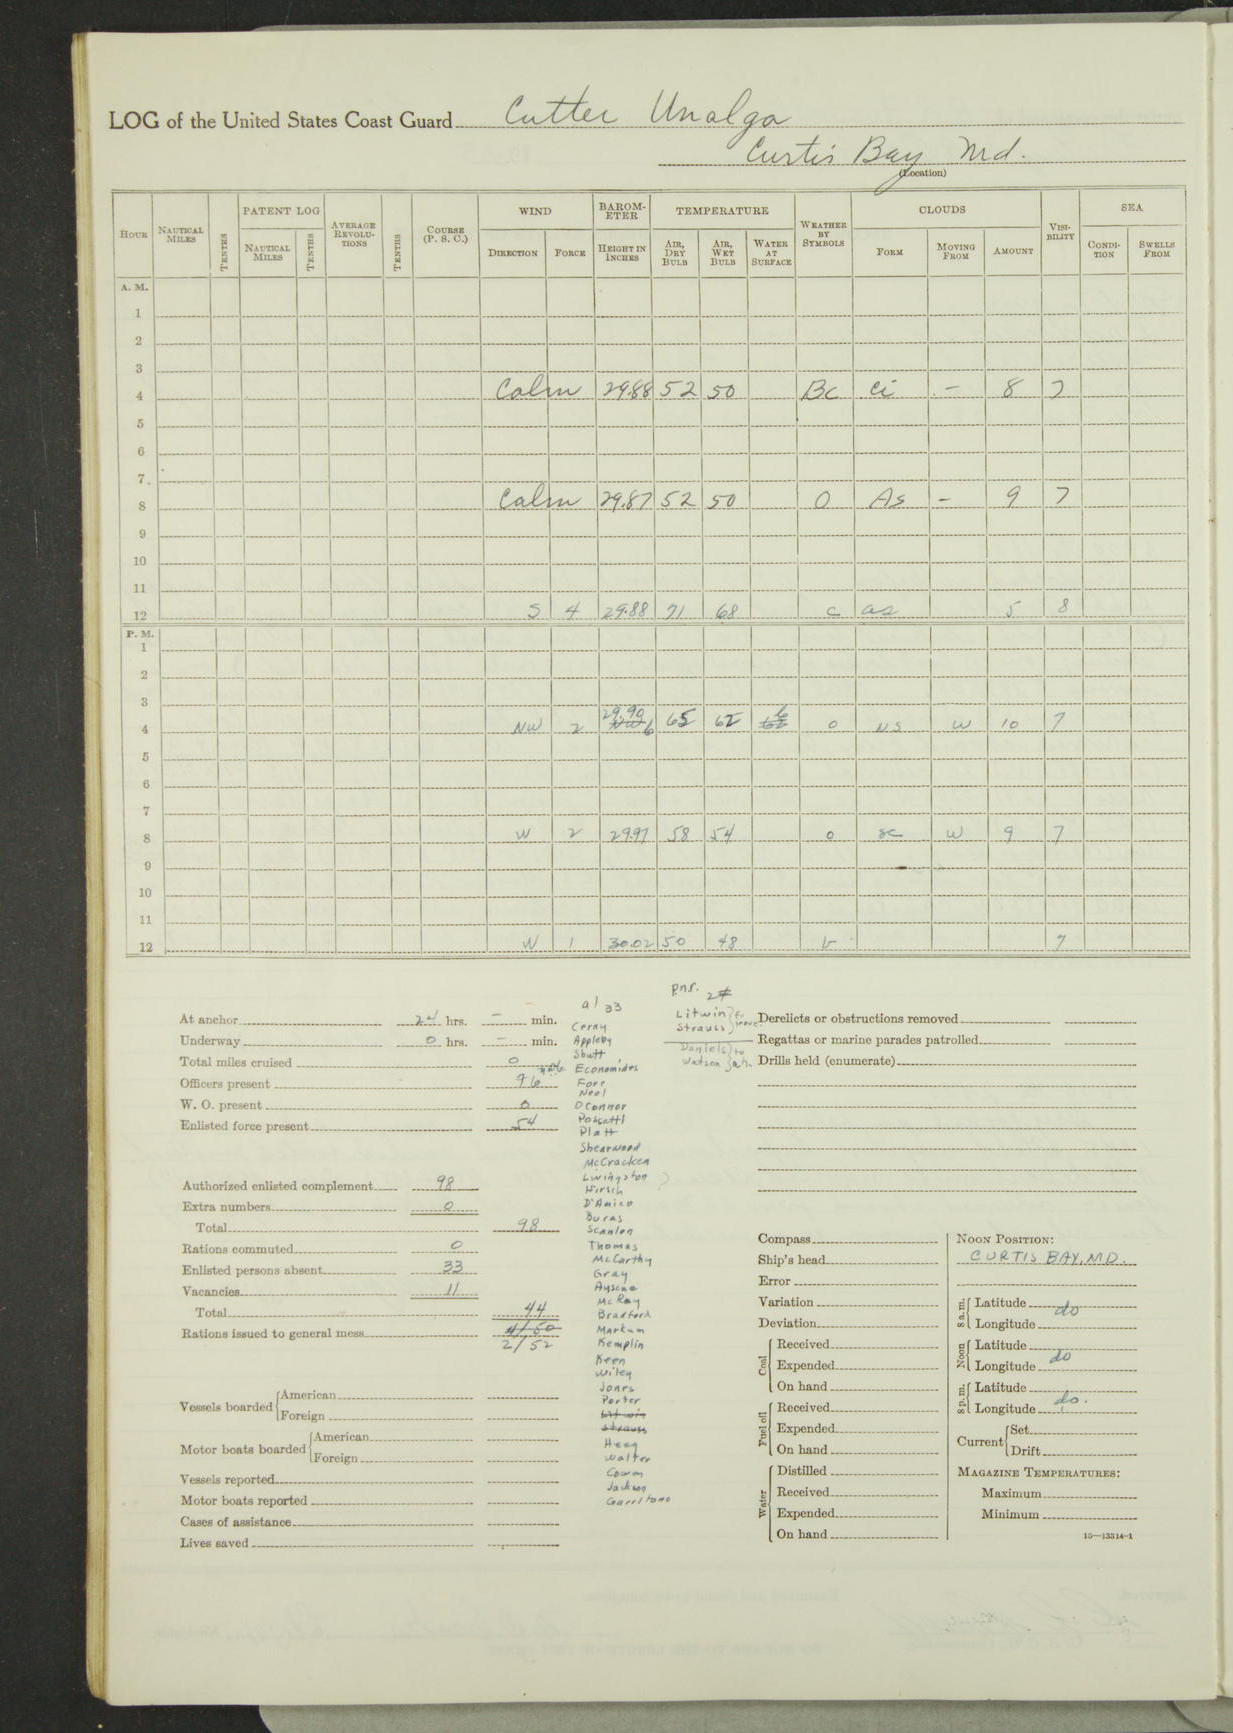 LOG of the United States Coast Guard Cutter Unalga
Curtis Bay Md.
(Location)
HOUR NAUTICAL MILES TENTHS PATENT LOG NAUTICAL MILES TENTHS AVERAGE REVOLUTIONS TENTHS COURSE (P. S. C.) WIND DIRECTION FORCE BAROMETER HEIGHT IN INCHES TEMPERATURE AIR, DRY BULB AIR, WET BULB WATER AT SURFACE WEATHER BY SYMBOLS CLOUDS FORM MOVING FROM AMOUNT VISIBILITY SEA CONDITION SWELLS FROM
A. M.
1
2
3
4 Calm 29.88 52 50 Bc Ci - 8 7
5
6
7
8 Calm 29.87 52 50 O As - 9 7
9
10
11
12 S 4 29.88 71 68 c as 5 8
P. M.
1
2
3
4 NW 2 29.90 65 62 0 NS W 10 7
5
6
7
8 W 2 29.97 58 54 0 sc W 9 7
9
10
11
12 W 1 30.02 50 48 b 7
At anchor 24 hrs. - min.
Underway 0 hrs. - min.
Total miles cruised 0
Officers present
W. O. present 0
Enlisted force present 54
Authorized enlisted complement 98
Extra numbers 0
Total 98
Rations commuted 0
Enlisted persons absent 33
Vacancies 11
Total 44
Rations issued to general mess 4/50
2/52
Vessels boarded American
Foreign
Motor boats boarded American
Foreign
Vessels reported
Motor boats reported
Cases of assistance
Lives saved
a/33
Cerny
Appleby
Shutt
Economides
Fore
Neal
O'Connor
Poscatti
Platt
Shearwood
McCracken
Livingston
Hirsch
D'Amico
Buras
Scanlon
Thomas
McCarthy
Gray
Ayscue
McRay
Bradford
Markum
Kemplin
Keen
Wiley
Jones
Porter
Litwin
Strauss
Heeg
Walter
Cowan
Jackson
prs. 2
Litwin
Strauss
Daniels to
Watson
Derelicts or obstructions removed
Regattas or marine parades patrolled
Drills held (enumerate)
Compass
Ship's head
Error
Variation
Deviation
Coal Received
Expended
On hand
Fuel oil Received
Expended
On hand
Water Distilled
Received
Expended
On hand
NOON POSITION:
CURTIS BAY, MD.
8 a. m. Latitude
Longitude do
Noon Latitude
Longitude do
8 p. m. Latitude
Longitude do.
Current Set
Drift
MAGAZINE TEMPERATURES:
Maximum
Minimum
16—13314-1